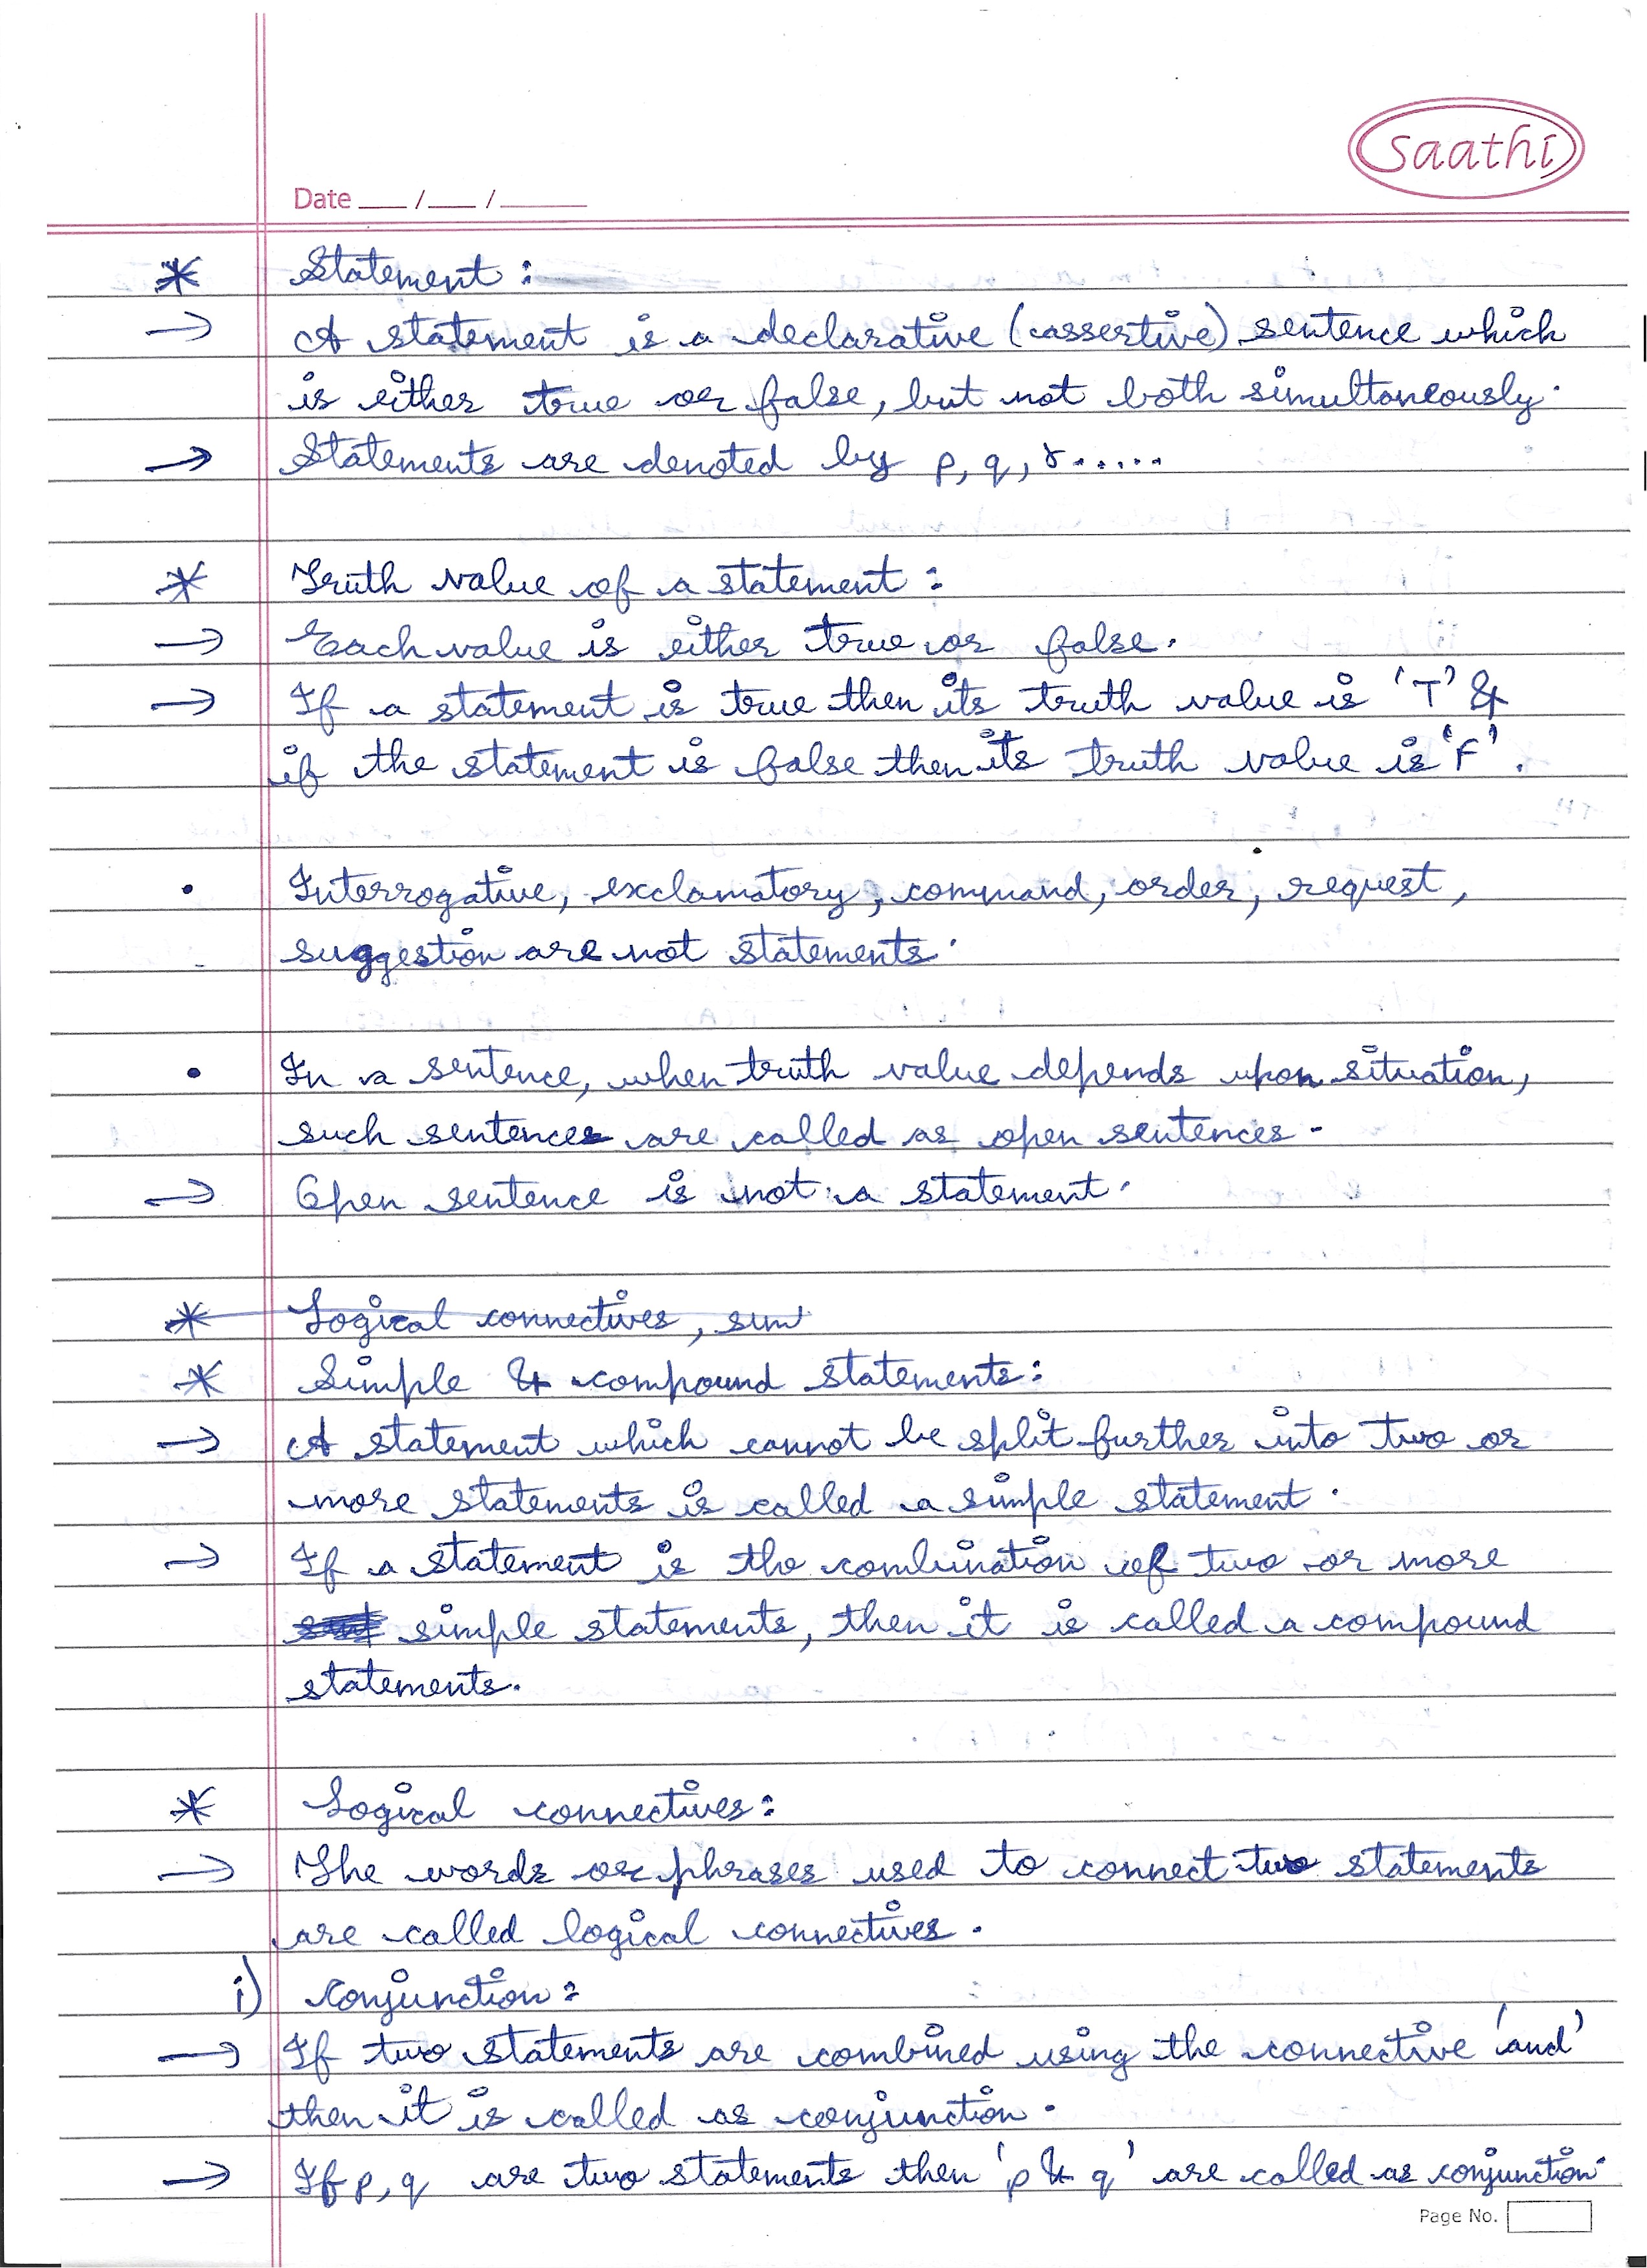 saathi
Date ___ / ___ / ______
* Statement :
→ A statement is a declarative (assertive) sentence which
is either true or false, but not both simultaneously.
→ Statements are denoted by p, q, r......
* Truth value of a statement :
→ Each value is either true or false.
→ If a statement is true then its truth value is 'T' &
if the statement is false then its truth value is 'F'.
• Interrogative, exclamatory, command, order, request,
suggestion are not statements.
• In a sentence, when truth value depends upon situation,
such sentences are called as open sentences.
→ Open sentence is not a statement.
* Logical connectives, sim
* Simple & compound statements:
→ A statement which cannot be split further into two or
more statements is called a simple statement.
→ If a statement is the combination of two or more
simple statements, then it is called a compound
statements.
* Logical connectives:
→ The words or phrases used to connect two statements
are called logical connectives.
i) Conjunction :
→ If two statements are combined using the connective 'and'
then it is called as conjunction.
→ If p, q are two statements then 'p & q' are called as conjunction.
Page No.